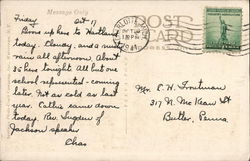 Message Only
Friday Oct 17
Drove up here to Hartland
today. Cloudy, and a mist
rain all afternoon. About
35 here tonight. All but one
school represented - coming
later. Not as cold as last
year. Callie came down
today. Rev. Sugden of
Jackson speaker
Chas
POST
CARD
1941
Mr. C. H. Troutman
317 N. McKean St
Butler, Penna.